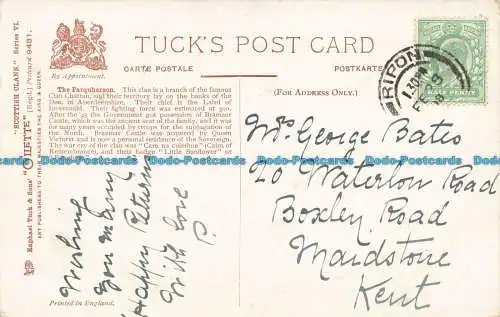 TUCK'S POST CARD
CARTE POSTALE
POSTKARTE
By Appointment.
(FOR ADDRESS ONLY.)
The Farquharson. This clan is a branch of the famous
Clan Chattan, and their territory lay on the banks of the
Dee, in Aberdeenshire. Their chief is the Laird of
Invercauld. Their fighting force was estimated at 500.
After the '45 the Government got possession of Braemar
Castle, which was the ancient seat of the family, and it was
for many years occupied by troops for the subjugation of
the North. Braemar Castle was
The war cry of the clan was "Cara na cuimhne" (Cairn of
Remembrance), and their badge "Little Sunflower" or
Wishing
you many
Happy Returns
With love
P.
Mrs George Bates
20 Waterlow Road
Boxley Road
Maidstone
Kent
RIPON
HALF PENNY
Printed in England.
Raphael Tuck & Sons' "OILETTE" [Regd.] Postcard 9481. "SCOTTISH CLANS" Series VI.
ART PUBLISHERS TO THEIR MAJESTIES THE KING & QUEEN.